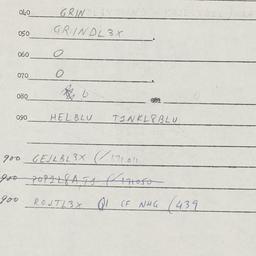 040 GRIN
050 GRINDL3X.
060 0
070 0.
080 6
090 HELBLU T1NKL8BLU
900 GEJLBL3X (/171011
900
900 ROJTL3X Q1 CF NHG (439